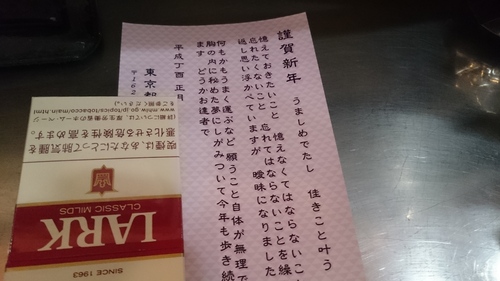 謹賀新年
うまし めでたし 佳きこと叶う
憶えておきたいこと 憶えなくてはならないこ
忘れたくないこと 忘れてはならないことを繰
返し思い浮かべていますが 曖昧になりました
何もかもうまく運ぶなど 願うこと自体が無理で
胸の内に秘めた夢にしがみついて今年も歩き続
ます どうかお達者で
平成丁酉 正月
東京都
〒162
喫煙は、あなたにとって肺気腫を
悪化させる危険性を高めます。
(詳細については、厚生労働省のホーム・ページ
www.mhlw.go.jp/topics/tobacco/main.html
をご参照ください。)
LARK
CLASSIC MILDS
SINCE 1963